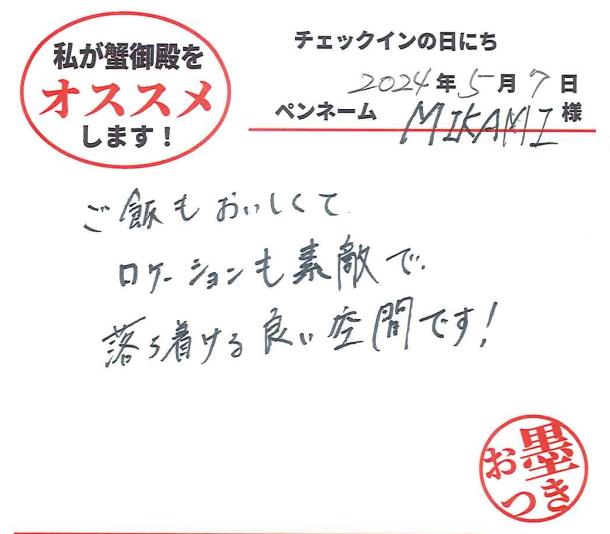 私が蟹御殿を
オススメ
します！
チェックインの日にち
2024年5月7日
ペンネーム MIKAMI 様
ご飯もおいしくて
ロケーションも素敵で、
落ち着ける良い空間です！
お墨
つき